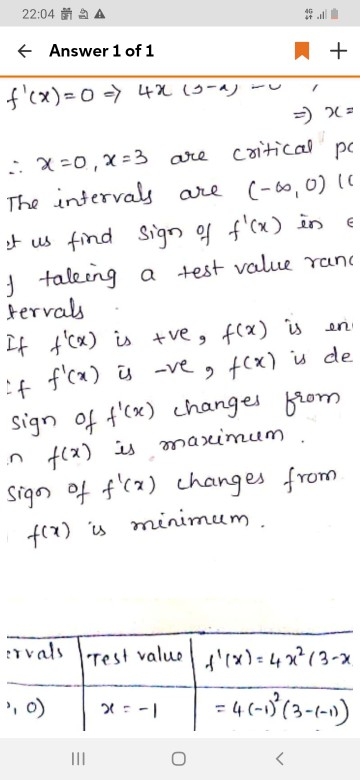 22:04
4G
Answer 1 of 1
f'(x)=0 ⇒ 4x
⇒ x=
∴ x=0, x=3 are critical
The intervals are (-∞, 0)
us find sign of f'(x) in
taking a test value
tervals
If f'(x) is +ve, f(x) is
f'(x) is -ve, f(x) is de
sign of f'(x) changes from
n f(x) is maximum.
sign of f'(x) changes from
f(x) is minimum.
ervals | Test value | f'(x) = 4x²(3-x
, 0) | x = -1 | = 4(-1)²(3-(-1))